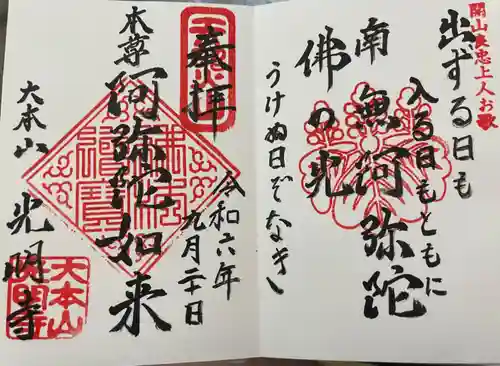 開山良忠上人お歌
出ずる日も
入る日もともに
南無阿弥陀
佛の光
うけぬ日ぞなき
奉拝
令和六年
九月二十日
本尊
阿弥陀如来
大本山
光明寺
大本山
光明寺